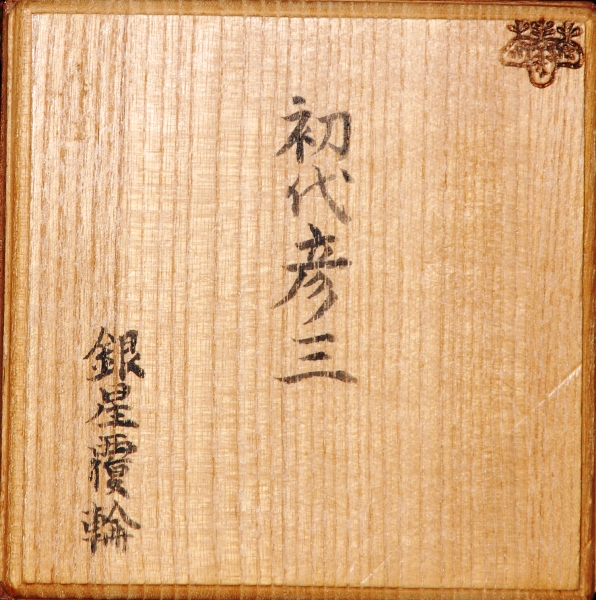 初代彦三
銀星覆輪